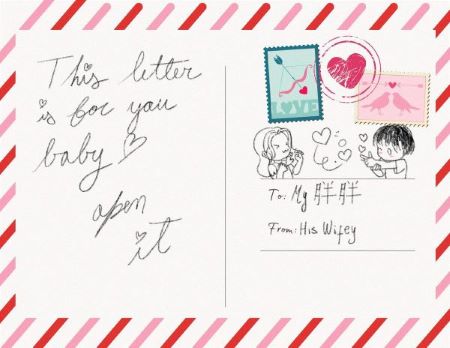 This letter
is for you
baby
open
it
LOVE
To: My 胖胖
From: His Wifey